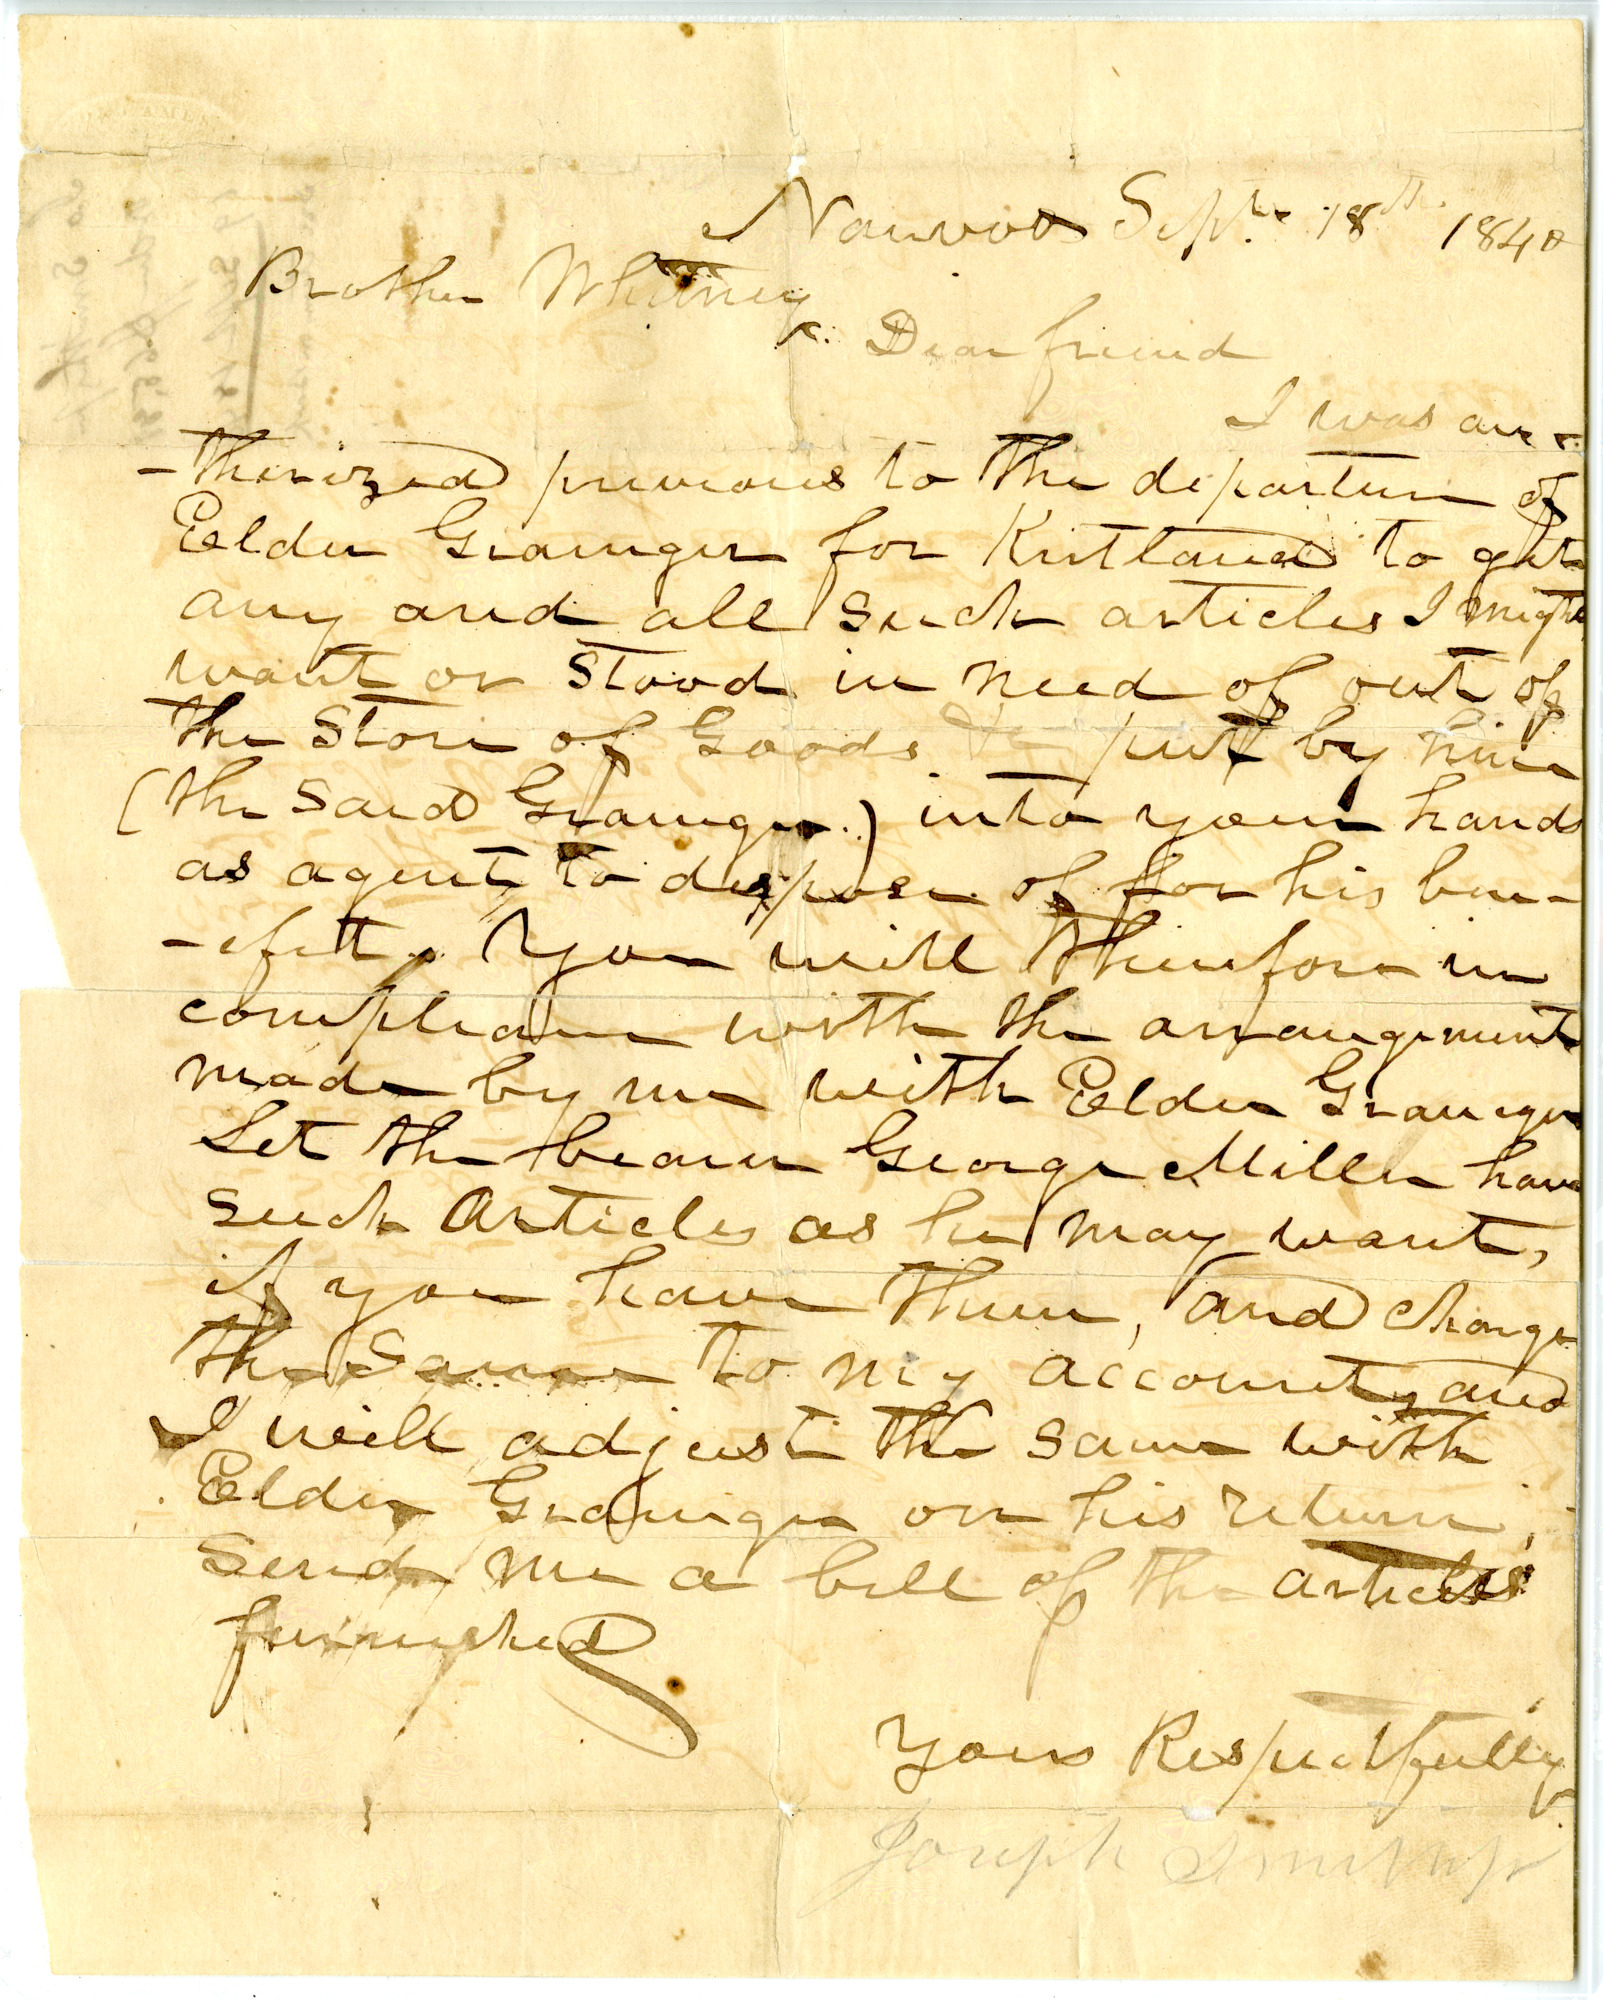 Nauvoo Septr. 18th. 1840
Brother Whitney
Dear friend
I was au
-thorized previous to the departure of
Eelder Grainger for Kirtland to get
any and all such articles I might
want or stood in need of out of
the Store of Goods put by him
(the said Grainger.) into your hands
as agent, to dispose of for his ben-
-efit. You will therefore in
compliance with the arrangement
made by me with Eelder Grainger
Let the bearer George Miller have
such Articles as he may want,
if you have them, and charge
the Same to my account, and
I will adjust the same with
Eelder Grainger on his return,
Send me a bill of the articles
furnished
Yours Respectfully
Joseph Smith Jr